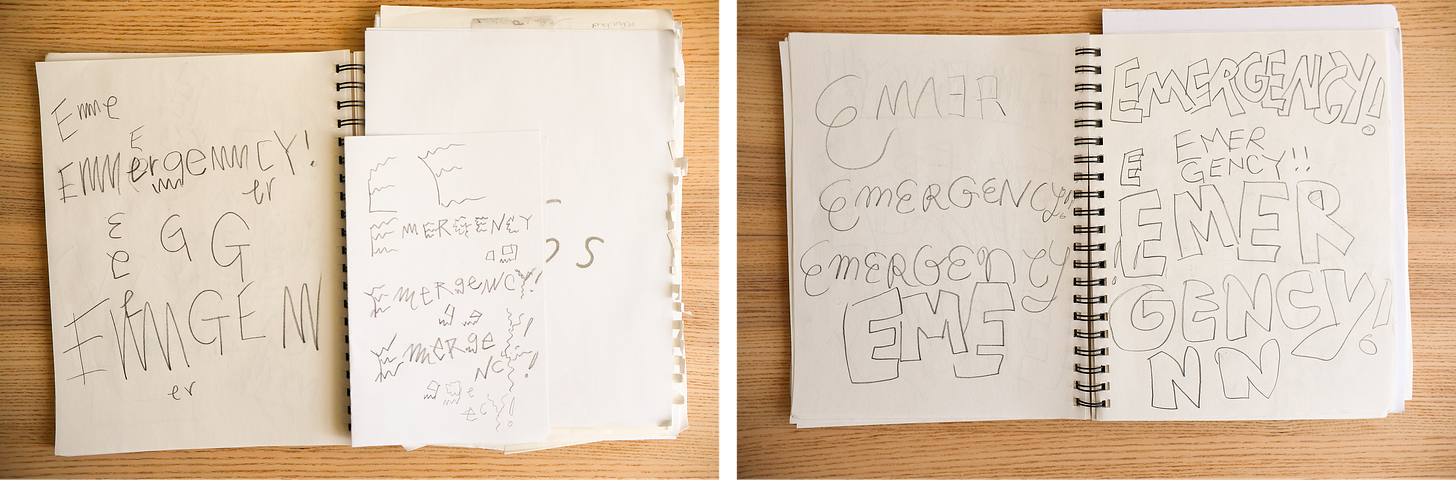 Emme
E
EMMergemmcy!
er
E
G G
E
EMMGE N
er
E
EMERGENCY
EMERGENCY!
EMERGE
NCY!
S
EMER
EMERGENCY!!
EMERGENCY
EME
EMERGENCY!
EMER
GENCY!!
E
EMER
GENCY!
NN